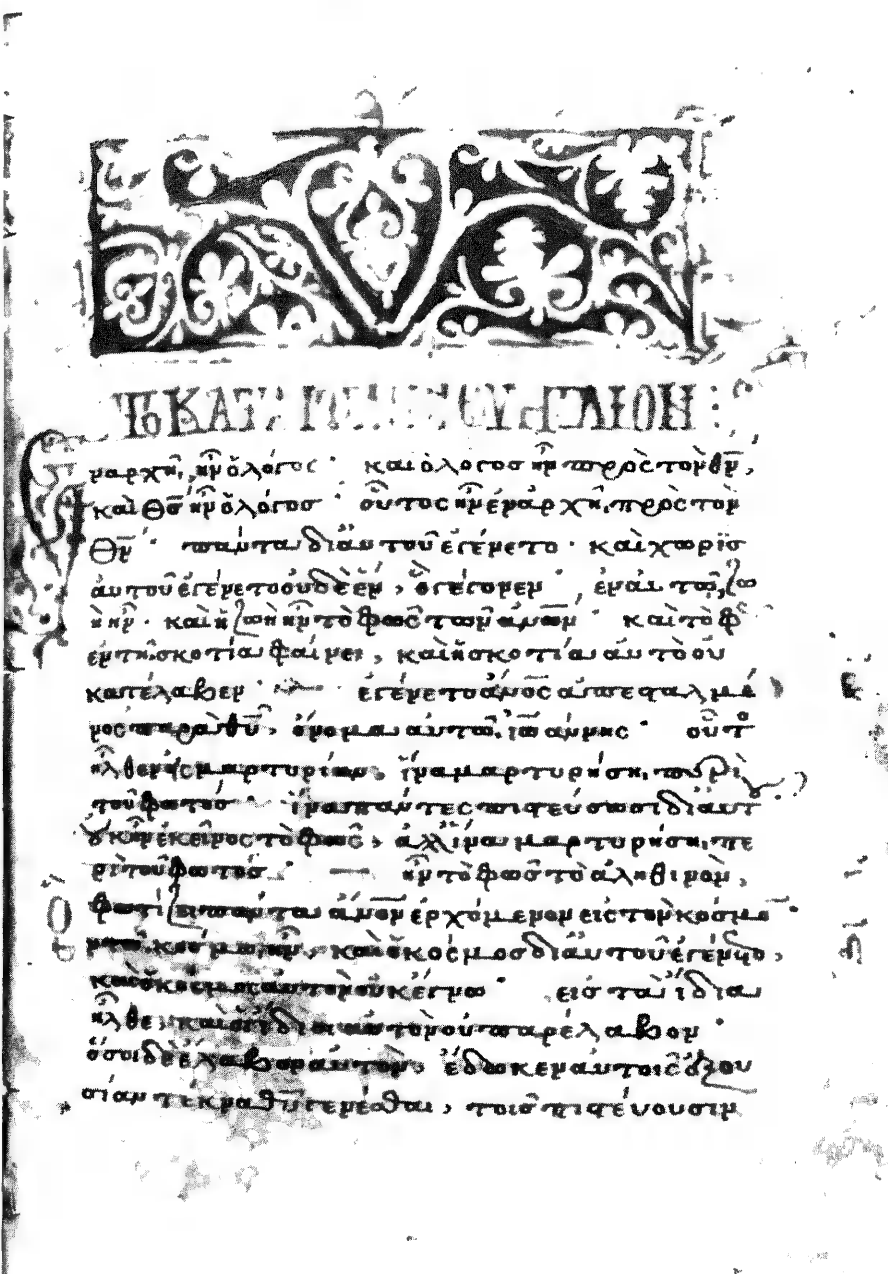 Τὸ ΚΑΤΑ ΕΥΑΓΓΕΛΙΟΝ :
Ἐναρχῆ, ἦν ὁ λόγος · καὶ ὁ λόγοσ ἦν πρὸς τὸν θν̅,
καὶ θσ̅ ἦν ὁ λόγοσ · οὗτος ἦν ἐν ἀρχῆ, πρὸς τὸν
θν̅ · πάντα δι ἀυτοῦ ἐγένετο · καὶ χωρῒσ
ἀυτοῦ ἐγένετο οὐδὲ ἓν, ὃ γέγονεν · ἐν αὐτῶ, ζω
ὴ ἦν · καὶ ἡ ζωὴ ἦν τὸ φῶς τῶν ἀνω̅ν · καὶ τὸ φῶς
ἐν τῆ σκοτία φαίνει, καὶ ἡ σκοτία αὐτὸ οὐ
κατέλαβεν · ἐγένετο ἄνο̅ς ἀπεσταλμέ
νος παρὰ θυ̅, ὄνομα αὐτῶ, ἰωάννης · οὗτος
ἦλθεν εἰς μαρτυρίαν, ἵνα μαρτυρήση, περὶ
τοῦ φωτόσ · ἵνα πάντες πιστεύσωσι δι ἀυτ
οὐκ ἦν ἐκεῖνος τὸ φῶς, ἀλλ ἵνα μαρτυρήση, πε
ρὶ τοῦ φωτόσ · ἦν τὸ φῶς τὸ ἀληθινὸν,
ὃ φωτίζει πάντα ἄνο̅ν ἐρχόμενον εἰς τὸν κόσμο̅ ·
ἐν τῶ κόσμω ἦν, καὶ ὁ κόσμοσ δι ἀυτοῦ ἐγένετο,
καὶ ὁ κόσμος αὐτὸν οὐκ ἔγνω · εἰσ τὰ ἴδια
ἦλθε, καὶ οἱ ἴδιοι αὐτὸν οὐ παρέλαβον ·
ὅσοι δὲ ἔλαβον αὐτὸν, ἔδωκεν ἀυτοῖς ἐξου
σίαν τέκνα θυ̅ γενέσθαι, τοῖσ πιστέυουσιν